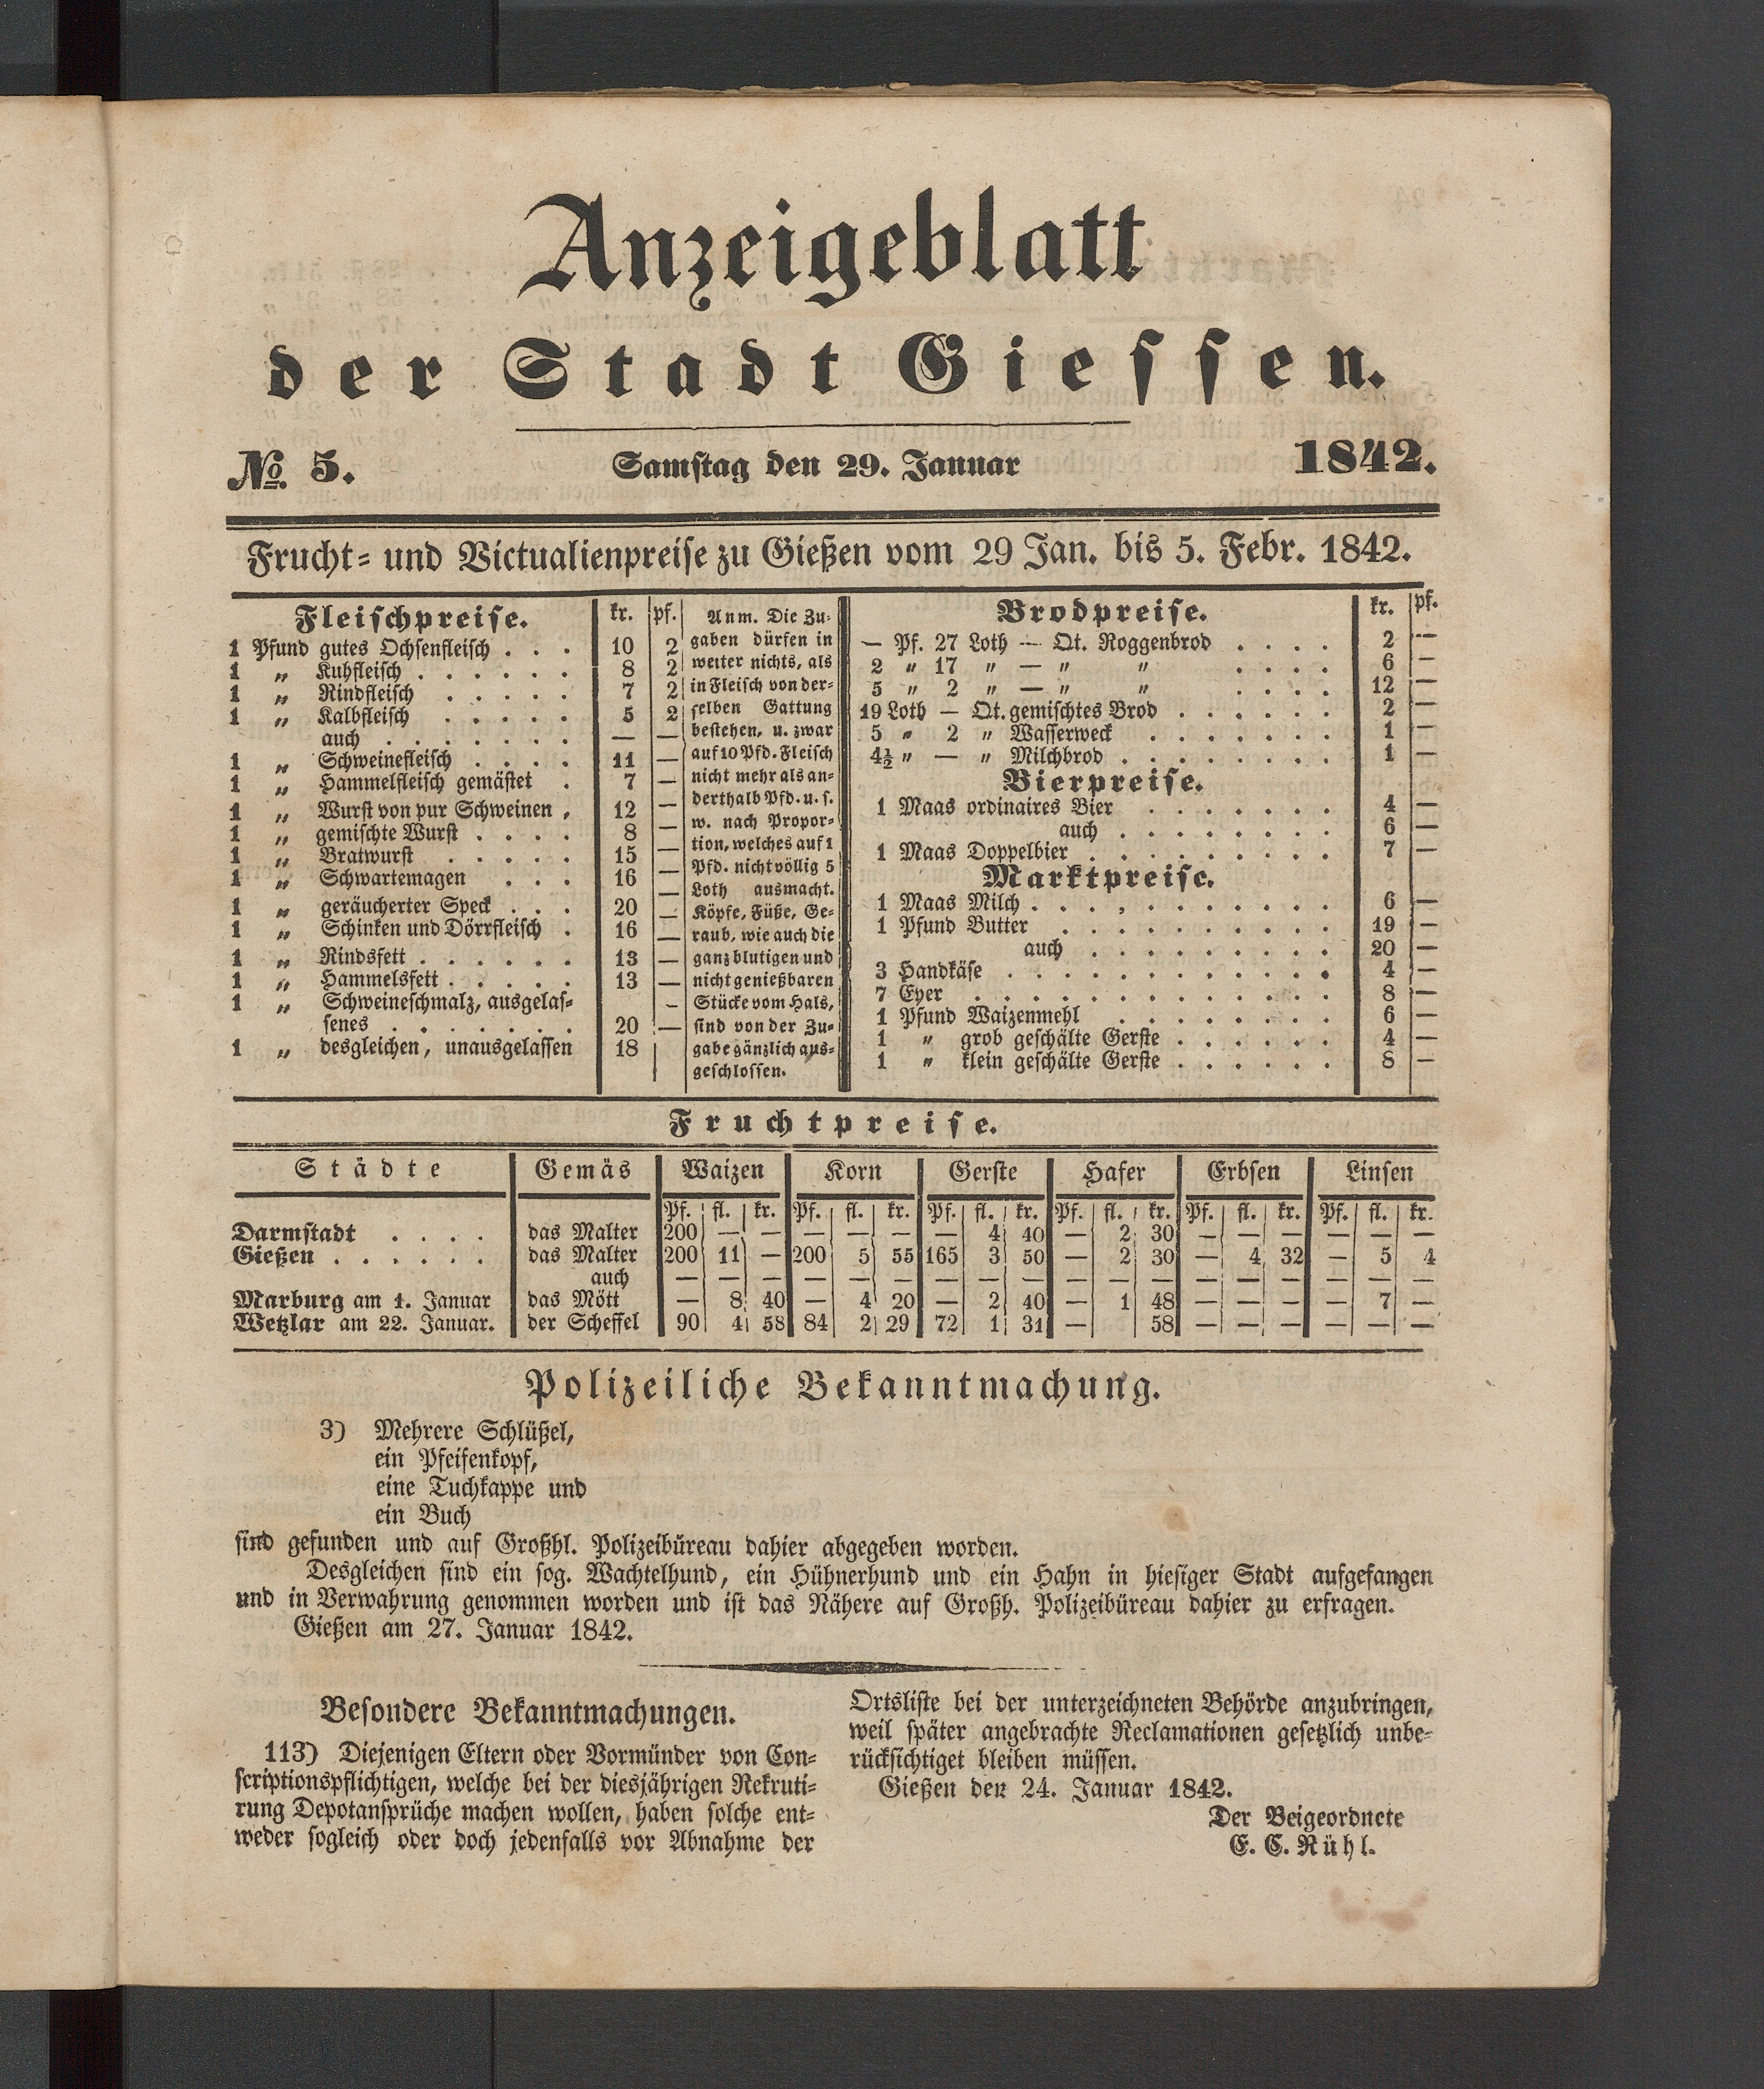 Anzeigeblatt
der Stadt Giessen.
No. 5. Samstag den 29. Januar 1842.
Frucht- und Victualienpreise zu Gießen vom 29 Jan. bis 5. Febr. 1842.
Fleischpreise. kr. pf.
1 Pfund gutes Ochsenfleisch . . . 10 2
1 „ Kuhfleisch . . . . . . 8 2
1 „ Rindfleisch . . . . . 7 2
1 „ Kalbfleisch . . . . . 5 2
auch . . . . . . . — —
1 „ Schweinefleisch . . . . 11 —
1 „ Hammelfleisch gemästet . 7 —
1 „ Wurst von pur Schweinen , 12 —
1 „ gemischte Wurst . . . . 8 —
1 „ Bratwurst . . . . . 15 —
1 „ Schwartemagen . . . 16 —
1 „ geräucherter Speck . . . 20 —
1 „ Schinken und Dörrfleisch . 16 —
1 „ Rindsfett . . . . . . 13 —
1 „ Hammelsfett . . . . . 13 —
1 „ Schweineschmalz, ausgelas-
senes . . . . . . . 20 —
1 „ desgleichen, unausgelassen 18
Anm. Die Zu-
gaben dürfen in
weiter nichts, als
in Fleisch von der-
selben Gattung
bestehen, u. zwar
auf 10 Pfd. Fleisch
nicht mehr als an-
derthalb Pfd. u. s.
w. nach Propor-
tion, welches auf 1
Pfd. nicht völlig 5
Loth ausmacht.
Köpfe, Füße, Ge-
raub, wie auch die
ganz blutigen und
nicht genießbaren
Stücke vom Hals,
sind von der Zu-
gabe gänzlich aus-
geschlossen.
Brodpreise. kr. pf.
— Pf. 27 Loth — Qt. Roggenbrod . . . . 2 —
2 „ 17 „ — „ „ . . . . 6 —
5 „ 2 „ — „ „ . . . . 12 —
19 Loth — Qt. gemischtes Brod . . . . . . 2 —
5 „ 2 „ Wasserweck . . . . . . . 1 —
4½ „ — „ Milchbrod . . . . . . . . 1 —
Bierpreise.
1 Maas ordinaires Bier . . . . . . . 4 —
auch . . . . . . . . 6 —
1 Maas Doppelbier . . . . . . . . . 7 —
Marktpreise.
1 Maas Milch . . . , . . . . . . . 6 —
1 Pfund Butter . . . . . . . . . . 19 —
auch . . . . . . . . . 20 —
3 Handkäse . . . . . . . . . . . . 4 —
7 Eyer . . . . . . . . . . . . . 8 —
1 Pfund Waizenmehl . . . . . . . . 6 —
1 „ grob geschälte Gerste . . . . . . 4 —
1 „ klein geschälte Gerste . . . . . . 8 —
Fruchtpreise.
Städte Gemäs Waizen Korn Gerste Hafer Erbsen Linsen
Pf. fl. kr. Pf. fl. kr. Pf. fl. kr. Pf. fl. kr. Pf. fl. kr. Pf. fl. kr.
Darmstadt . . . . das Malter 200 — — — — — — 4 40 — 2 30 — — — — — —
Gießen . . . . . . das Malter 200 11 — 200 5 55 165 3 50 — 2 30 — 4 32 — 5 4
auch — — — — — — — — — — — — — — — — — —
Marburg am 1. Januar das Mött — 8 40 — 4 20 — 2 40 — 1 48 — — — — 7 —
Wetzlar am 22. Januar. der Scheffel 90 4 58 84 2 29 72 1 31 — 58 — — — — — —
Polizeiliche Bekanntmachung.
3) Mehrere Schlüßel,
ein Pfeifenkopf,
eine Tuchkappe und
ein Buch
sind gefunden und auf Großhl. Polizeibüreau dahier abgegeben worden.
Desgleichen sind ein sog. Wachtelhund, ein Hühnerhund und ein Hahn in hiesiger Stadt aufgefangen
und in Verwahrung genommen worden und ist das Nähere auf Großh. Polizeibüreau dahier zu erfragen.
Gießen am 27. Januar 1842.
Besondere Bekanntmachungen.
113) Diejenigen Eltern oder Vormünder von Con-
scriptionspflichtigen, welche bei der diesjährigen Rekruti-
rung Depotansprüche machen wollen, haben solche ent-
weder sogleich oder doch jedenfalls vor Abnahme der
Ortsliste bei der unterzeichneten Behörde anzubringen,
weil später angebrachte Reclamationen gesetzlich unbe-
rücksichtiget bleiben müssen.
Gießen den 24. Januar 1842.
Der Beigeordnete
E. C. Rühl.